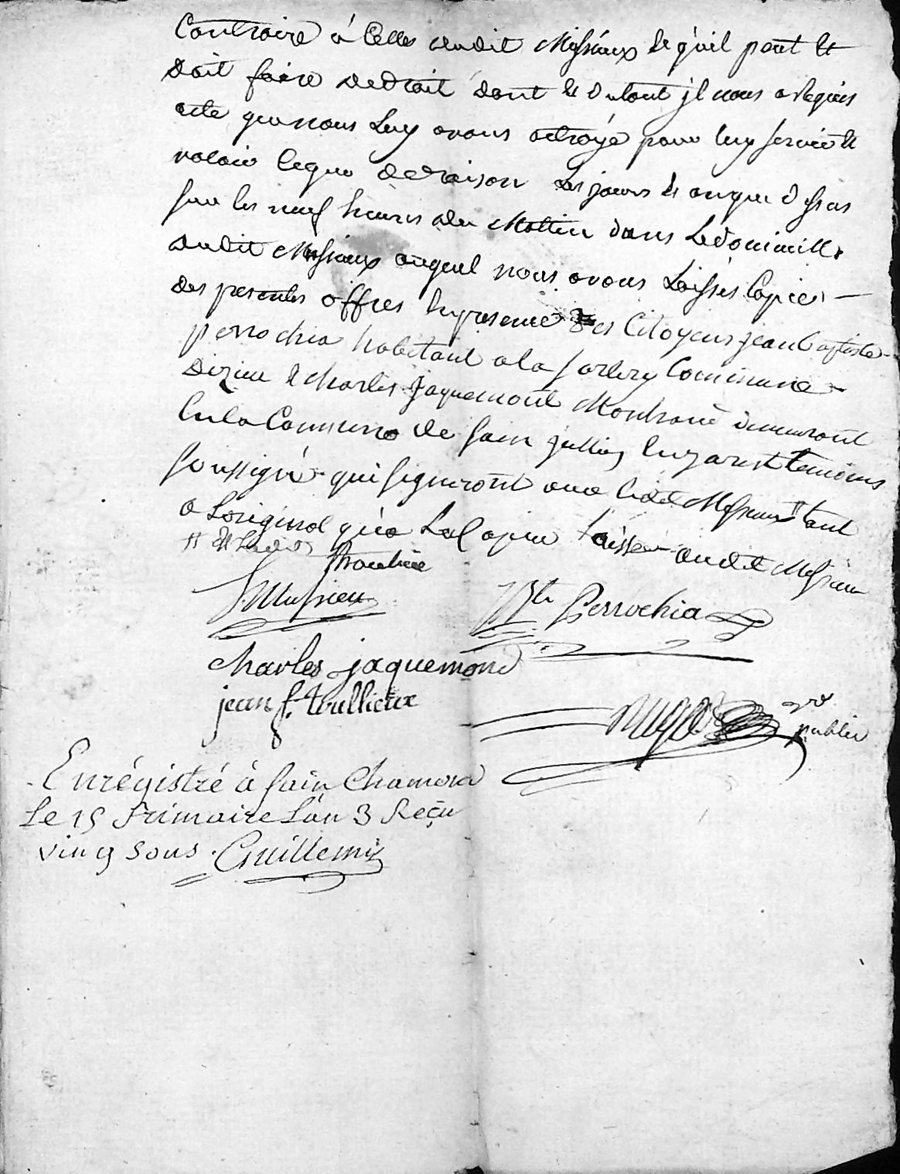 Contraire à Celles dudit Messieux ce qu'il peut et
doit faire de droit dont et du tout jl nous a Requis
acte que nous Luy avons octroyé pour luy servir et
valoir ce que de raison Les jours et an que dessus
sur les neuf heures du Mattin dans Le domicille
dudit Messieux auquel nous avons Laissés Copie
des presentes offres En presence des Citoyens jean Baptiste
perrochia habitant a la Commune
Dizieu & Charles jaquemont demeurant
En la Commune de sain jullien En jarest temoins
soussigné qui signeront avec ledit Messieux tant
a Loriginal qu'a La Copie Laissée audit Messieux
JMessieux
Bte Perrochia
Charles jaquemond
jean f. thullieux
public
Enrégistré à sain Chamond
Le 15 frimaire L'an 3 Reçu
vingt sous. Guillemin